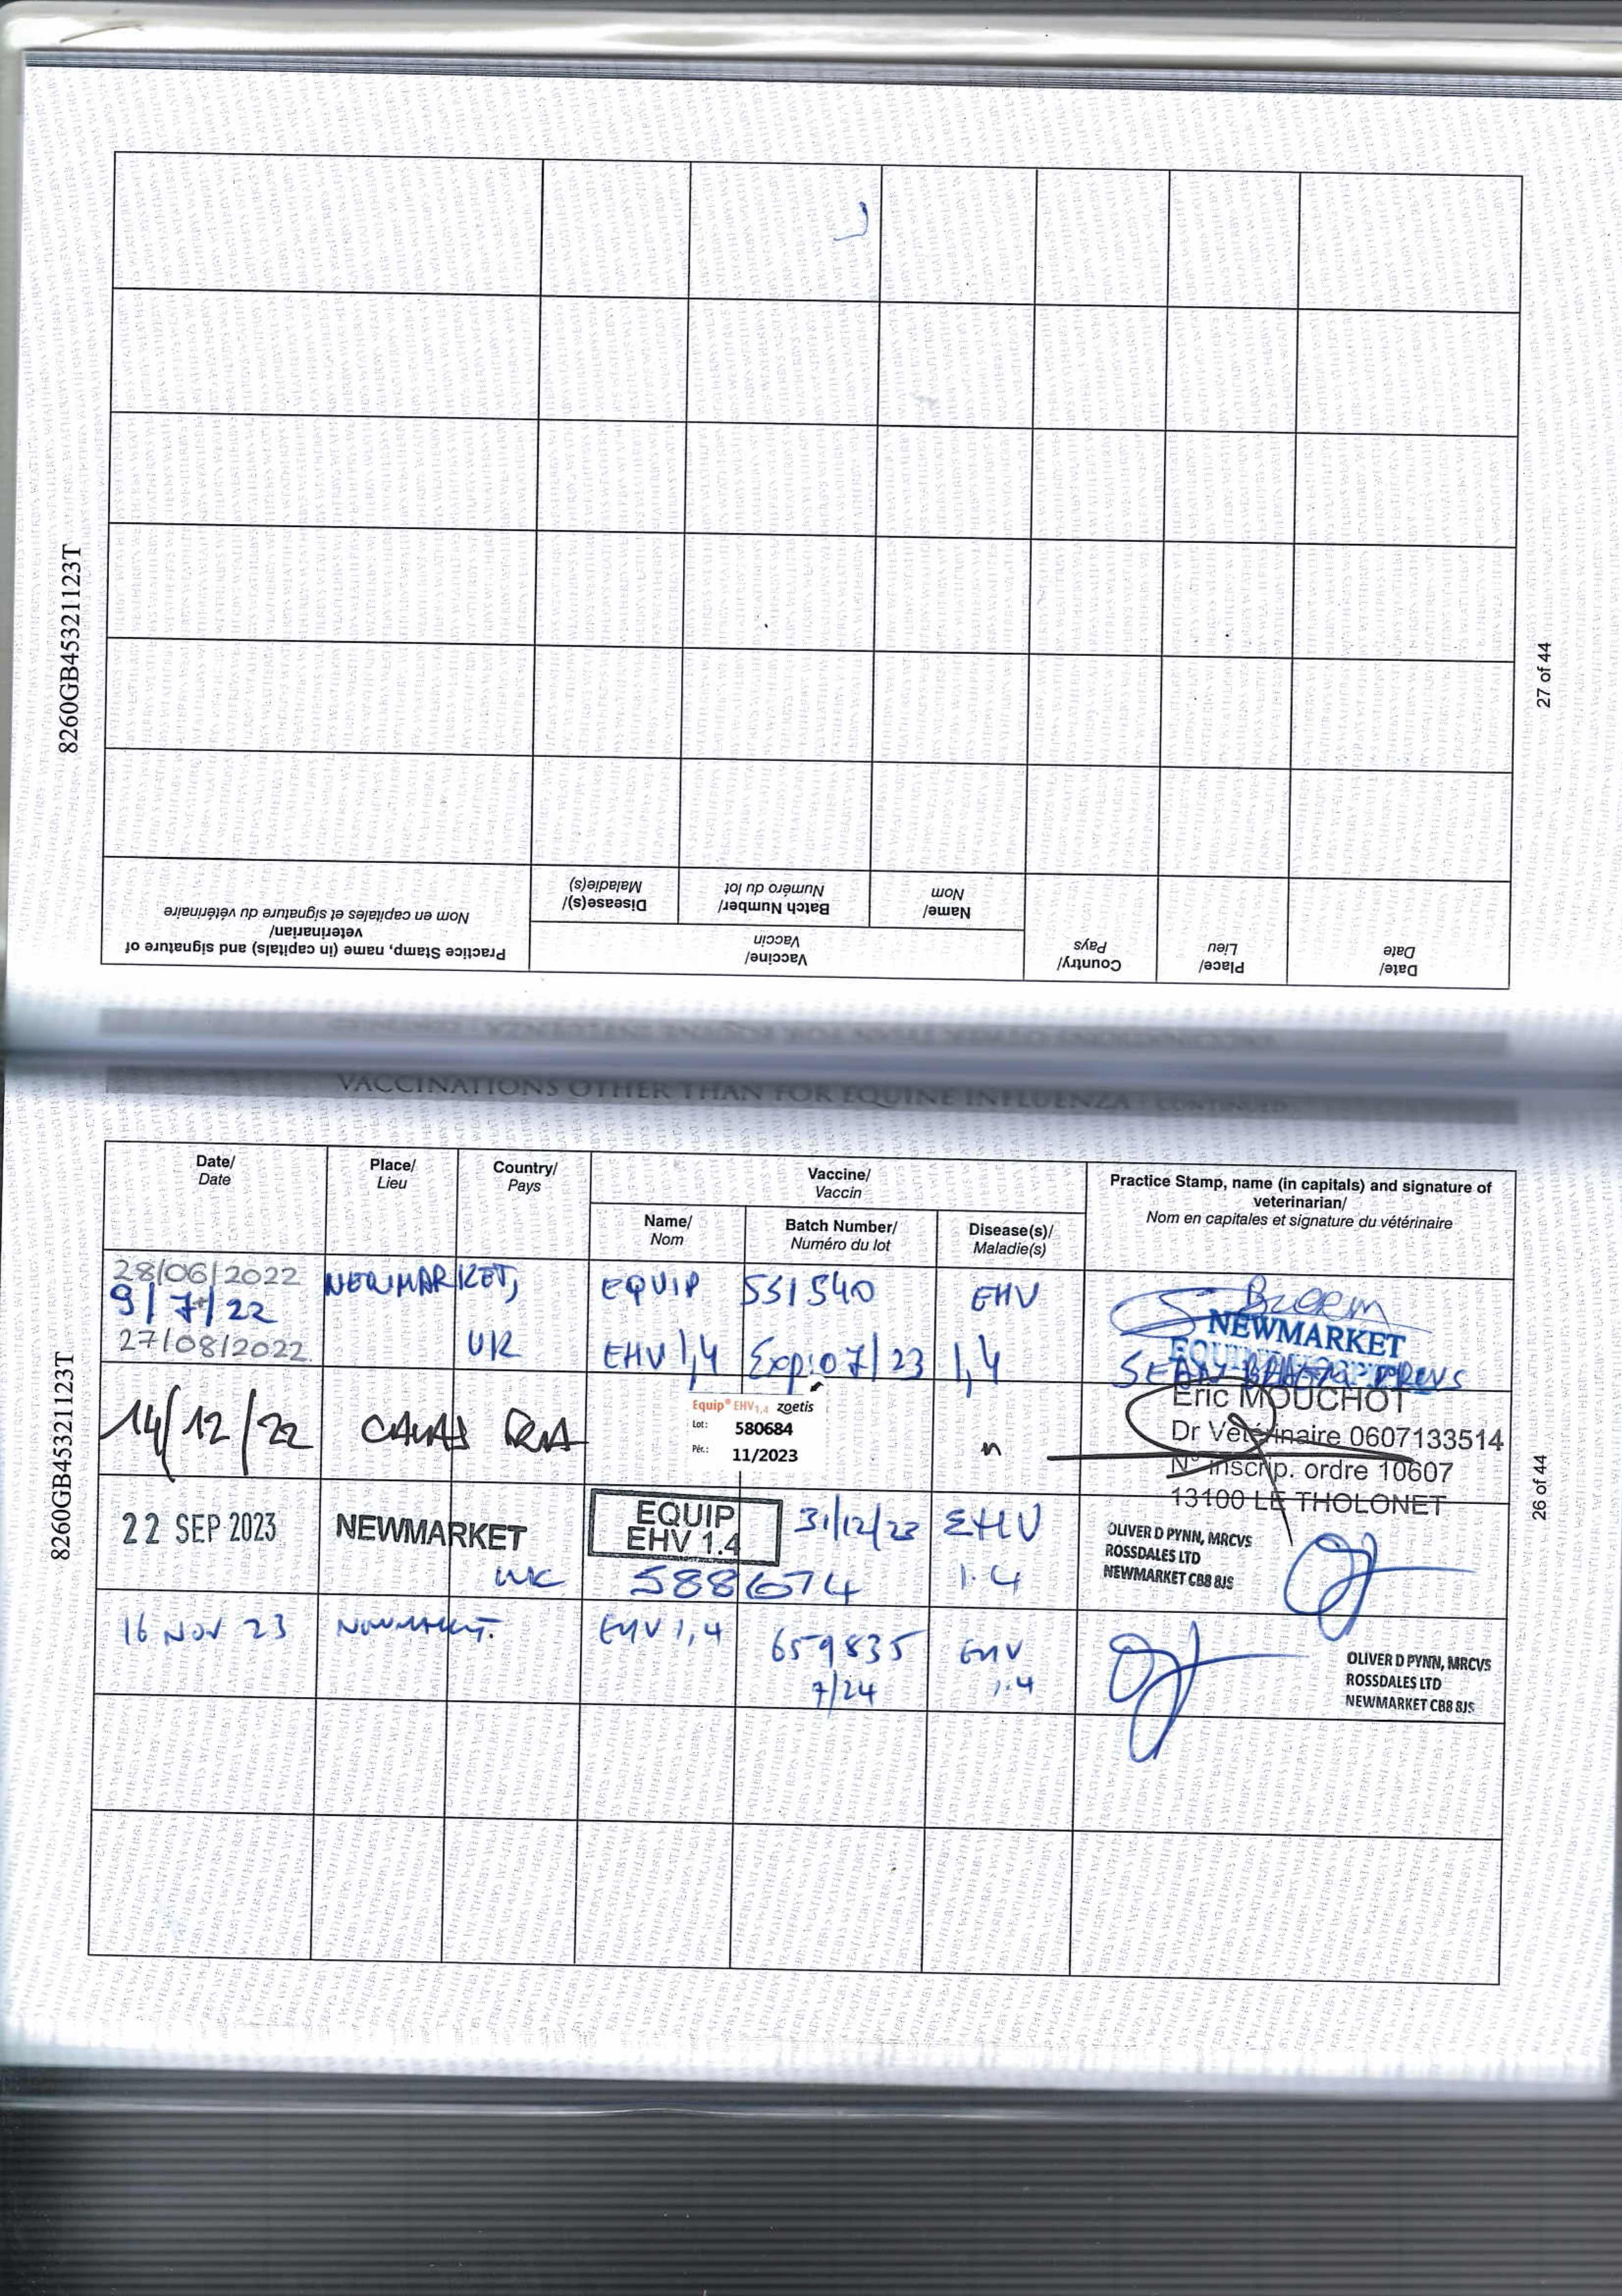 8260GB45321123T
27 of 44
Practice Stamp, name (in capitals) and signature of
veterinarian/
Nom en capitales et signature du vétérinaire
Vaccine/
Vaccin
Disease(s)/
Maladie(s)
Batch Number/
Numéro du lot
Name/
Nom
Country/
Pays
Place/
Lieu
Date/
Date
VACCINATIONS OTHER THAN FOR EQUINE INFLUENZA - CONTINUED
8260GB45321123T
26 of 44
Date/
Date
Place/
Lieu
Country/
Pays
Vaccine/
Vaccin
Name/
Nom
Batch Number/
Numéro du lot
Disease(s)/
Maladie(s)
Practice Stamp, name (in capitals) and signature of
veterinarian/
Nom en capitales et signature du vétérinaire
28/06/2022
9/7/22
27/08/2022
NEWMARKET,
UK
EQUIP
EHV 1,4
551540
Exp: 07/23
EHV
1,4
NEWMARKET
SEAN
14/12/22
Equip® EHV1,4 zoetis
Lot: 580684
Pér.: 11/2023
Eric MOUCHOT
Dr Vétérinaire 0607133514
N° inscrip. ordre 10607
13100 LE THOLONET
22 SEP 2023
NEWMARKET
UK
EQUIP
EHV 1.4
31/12/23
588674
EHV
1.4
OLIVER D PYNN, MRCVS
ROSSDALES LTD
NEWMARKET CB8 8JS
16 NOV 23
NEWMARKET.
EHV 1,4
659835
7/24
EHV
1.4
OLIVER D PYNN, MRCVS
ROSSDALES LTD
NEWMARKET CB8 8JS